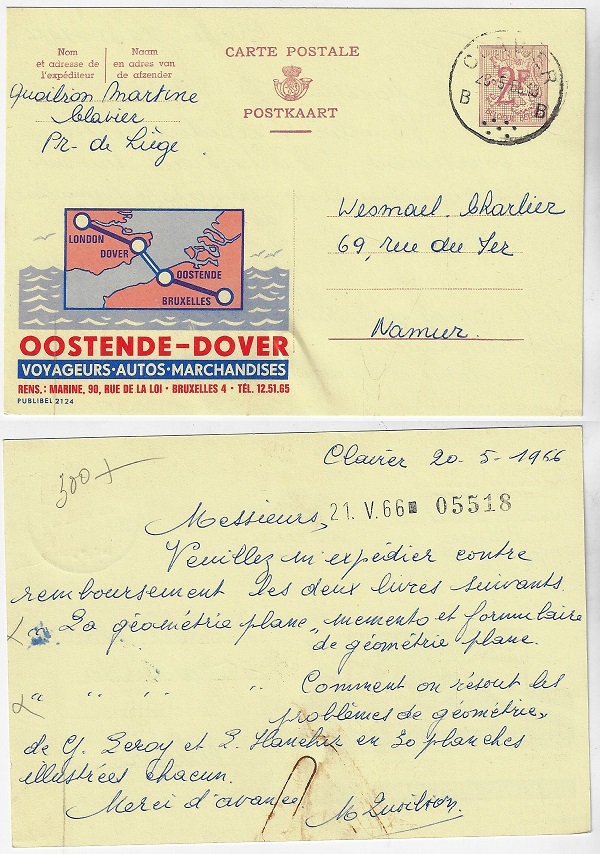 Nom Naam
et adresse de en adres van
l'expéditeur de afzender
CARTE POSTALE
POSTKAART
2F
B B
Martine
Clavier
Pr- de Liège
Wesmael. Charlier
69, rue du Fer
Namur.
LONDON
DOVER
OOSTENDE
BRUXELLES
OOSTENDE-DOVER
VOYAGEURS·AUTOS·MARCHANDISES
RENS.: MARINE, 90, RUE DE LA LOI · BRUXELLES 4 · TÉL. 12.51.65
PUBLIBEL 2124
Clavier 20-5-1966
300+
Messieurs, 21. V. 66 05518
Veuillez m'expédier contre
remboursement les deux livres suivants.
La géométrie plane „ memento et formulaire
de géométrie plane.
" " " " Comment on résout les
problèmes de géométrie„
de G. Leroy et L. en 30 planches
illustrées chacun.
Merci d'avance.